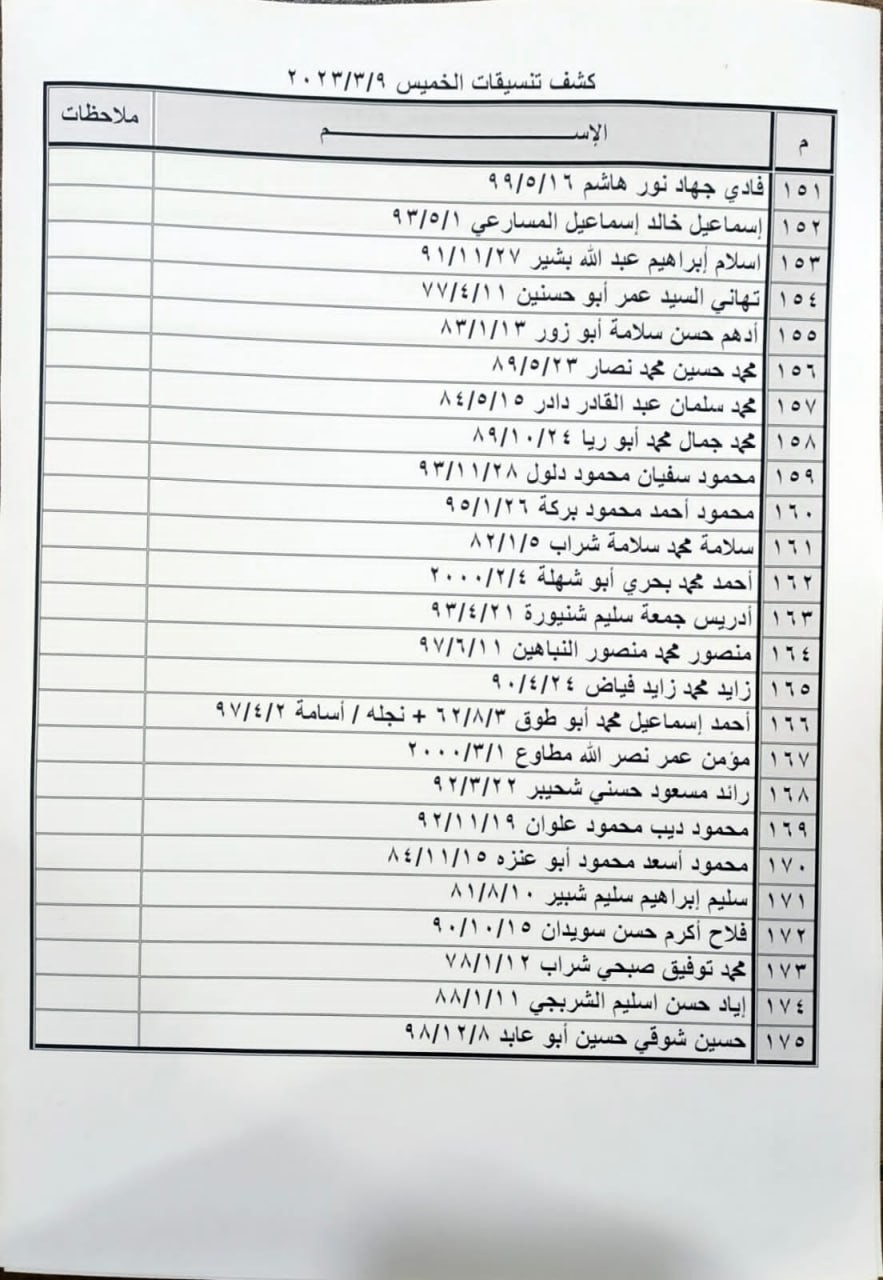 كشف تنسيقات الخميس ٢٠٢٣/٣/٩
م الإســـــــــــــــم ملاحظات
١٥١ فادي جهاد نور هاشم ٩٩/٥/١٦
١٥٢ إسماعيل خالد إسماعيل المسارعي ٩٣/٥/١
١٥٣ اسلام إبراهيم عبد الله بشير ٩١/١١/٢٧
١٥٤ تهاني السيد عمر أبو حسنين ٧٧/٤/١١
١٥٥ أدهم حسن سلامة أبو زور ٨٣/١/١٣
١٥٦ محمد حسين محمد نصار ٨٩/٥/٢٣
١٥٧ محمد سلمان عبد القادر دادر ٨٤/٥/١٥
١٥٨ محمد جمال محمد أبو ريا ٨٩/١٠/٢٤
١٥٩ محمود سفيان محمود دلول ٩٣/١١/٢٨
١٦٠ محمود أحمد محمود بركة ٩٥/١/٢٦
١٦١ سلامة محمد سلامة شراب ٨٢/١/٥
١٦٢ أحمد محمد بحري أبو شهلة ٢٠٠٠/٢/٤
١٦٣ أدريس جمعة سليم شنيورة ٩٣/٤/٢١
١٦٤ منصور محمد منصور النباهين ٩٧/٦/١١
١٦٥ زايد محمد زايد فياض ٩٠/٤/٢٤
١٦٦ أحمد إسماعيل محمد أبو طوق ٦٢/٨/٣ + نجله / أسامة ٩٧/٤/٢
١٦٧ مؤمن عمر نصر الله مطاوع ٢٠٠٠/٣/١
١٦٨ رائد مسعود حسني شحيبر ٩٢/٣/٢٢
١٦٩ محمود ديب محمود علوان ٩٢/١١/١٩
١٧٠ محمود أسعد محمود أبو عنزه ٨٤/١١/١٥
١٧١ سليم إبراهيم سليم شبير ٨١/٨/١٠
١٧٢ فلاح أكرم حسن سويدان ٩٠/١٠/١٥
١٧٣ محمد توفيق صبحي شراب ٧٨/١/١٢
١٧٤ إياد حسن اسليم الشربجي ٨٨/١/١١
١٧٥ حسين شوقي حسين أبو عابد ٩٨/١٢/٨